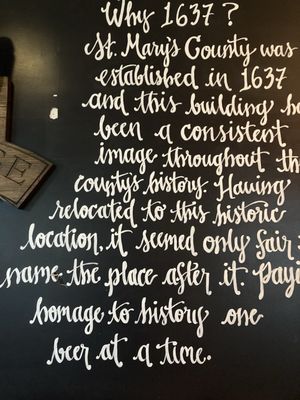 Why 1637?
St. Mary's County was
established in 1637
and this building ha
been a consistent
image throughout th
county's history. Having
relocated to this historic
location, it seemed only fair
name the place after it. Payi
homage to history one
beer at a time.